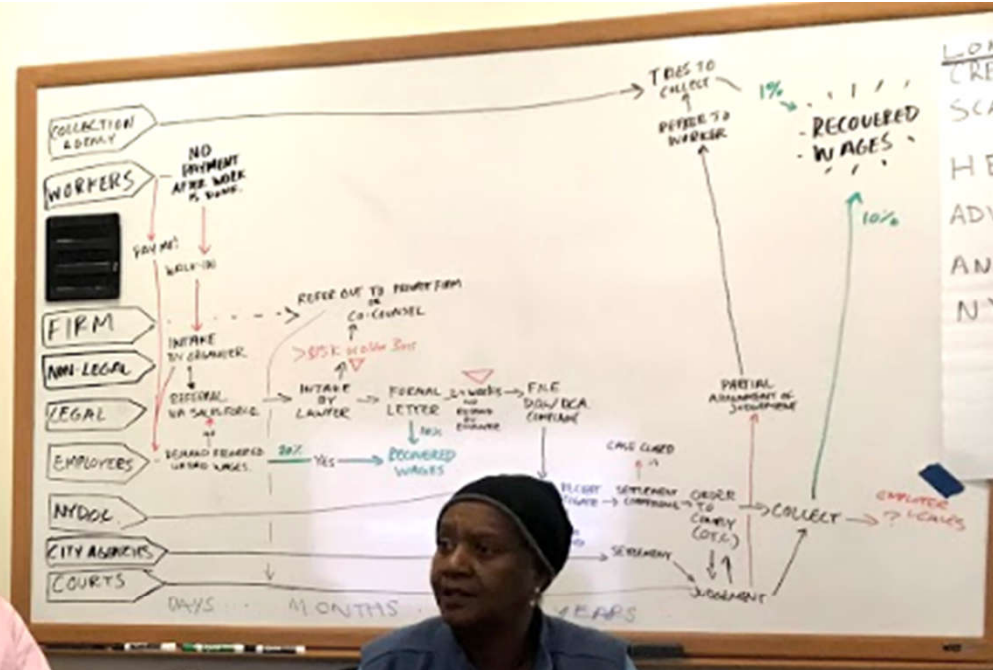 COLLECTION
AGENCY
WORKERS
FIRM
NON-LEGAL
LEGAL
EMPLOYERS
NYDOL
CITY AGENCIES
COURTS
NO
PAYMENT
AFTER WORK
IS DONE.
PAY ME!
WALK-IN
INTAKE
BY ORGANIZER
REFERRAL
VIA SALESFORCE
NO
DEMAND
WAGES.
20%
YES
REFER OUT TO PRIVATE FIRM
OR
CO-COUNSEL
INTAKE
BY
LAWYER
FORMAL
LETTER
RECOVERED
WAGES
WEEKS
NO
FILE
DOL/DCA
COMPLAINT
CASE CLOSED
SETTLEMENT
ORDER
TO
COMPLY
(OTC)
SETTLEMENT
JUDGEMENT
PARTIAL
ASSIGNMENT OF
JUDGEMENT
COLLECT
EMPLOYER
? LEAVES
REFER TO
WORKER
TRIES TO
COLLECT
1%
RECOVERED
WAGES
10%
DAYS
MONTHS
YEARS
CRE
SCA
HE
ADV
AN
NY